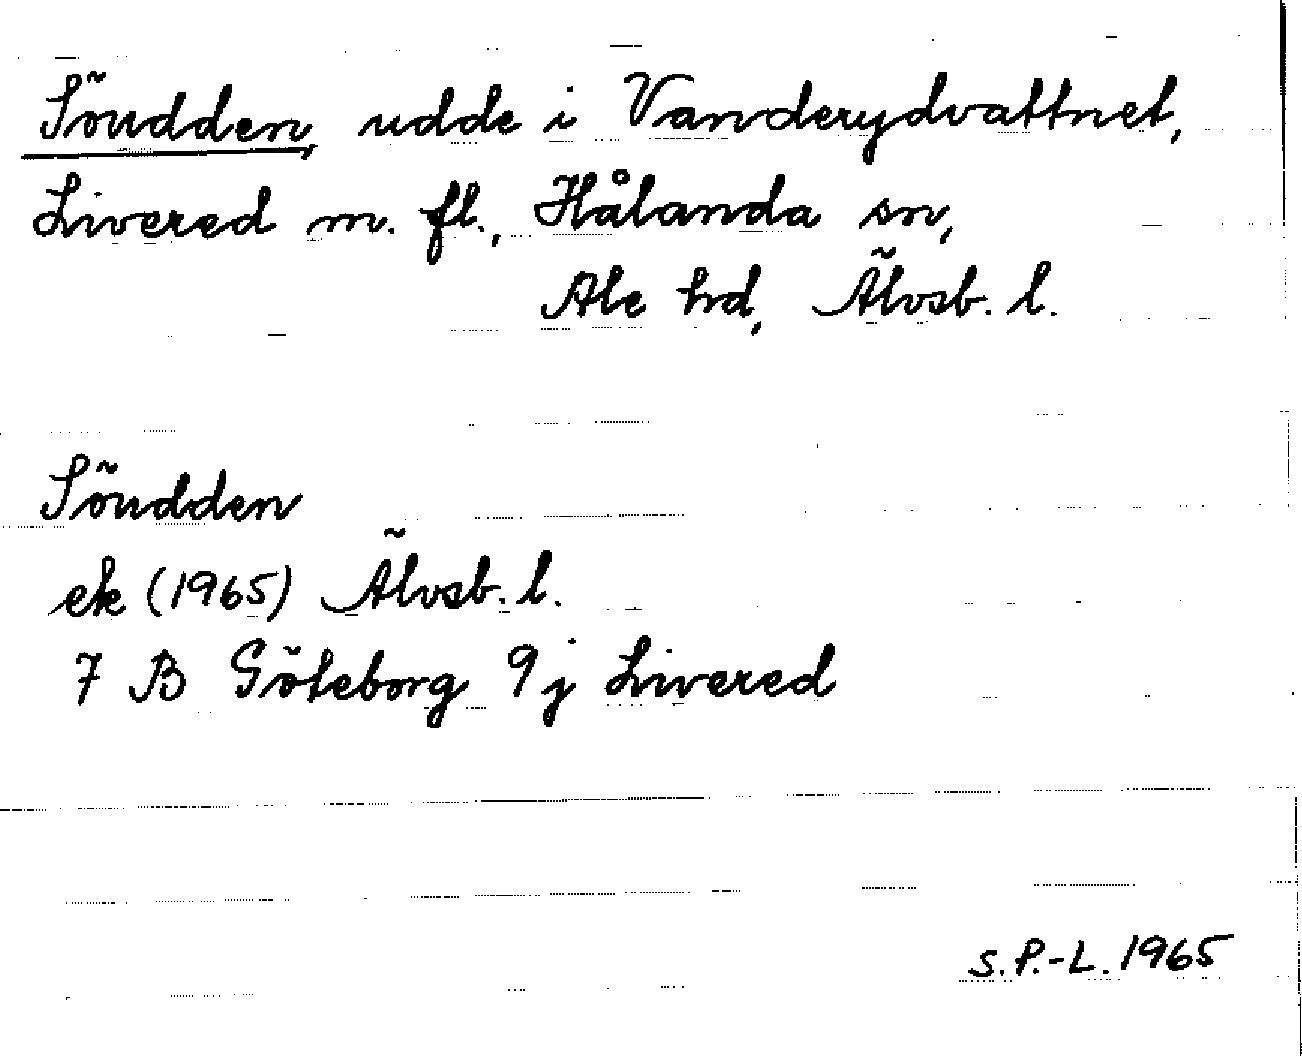 Söudden, udde i Vanderydvattnet,
Livered m. fl., Hålanda sn,
Ale hd, Älvsb. l.
Söudden
ek (1965) Älvsb. l.
7 B Göteborg 9j Livered
S. P.-L. 1965